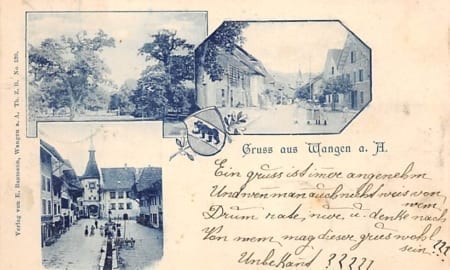 Verlag von E. Baumann, Wangen a. A. Th. Z. B. No 580.
Gruss aus Wangen a. A
Ein gruss ist imer angenehm
Und wen man auch nicht weis von
wem
Drum rate, u denke nach
Von wem mag dieser grues wohl
sein. ???
Unbekant? ?????